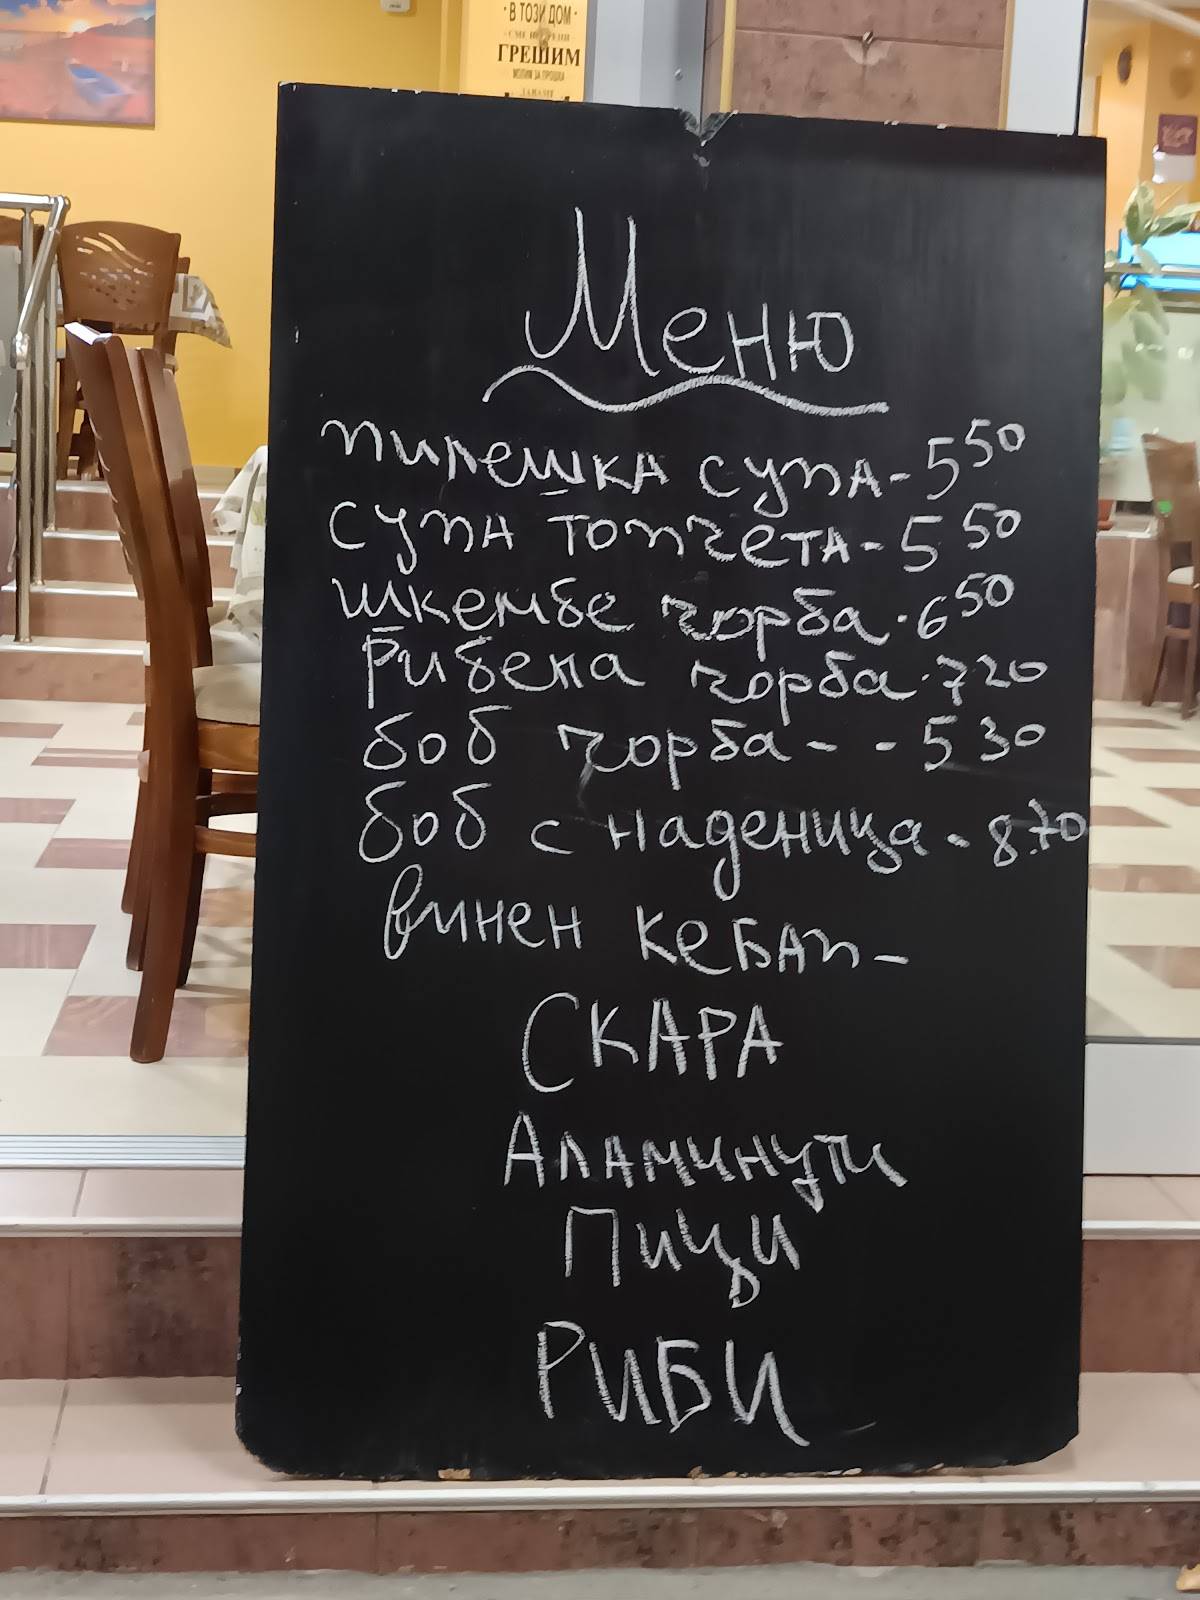 В ТОЗИ ДОМ
ГРЕШИМ
МОЛИМ ЗА ПРОШКА
Меню
пилешка супа - 5 50
супа топчета - 5 50
шкембе чорба - 6 50
Рибена чорба - 7 20
боб чорба - - 5 30
боб с наденица - 8.70
винен кебап -
СКАРА
Аламинути
Пици
РИБИ